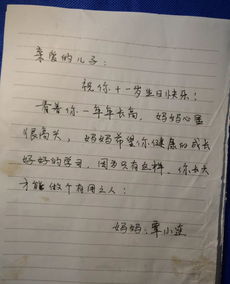 亲爱的儿子：
祝你十一岁生日快乐！
看着你一年年长高，妈妈心里
很高兴，妈妈希望你健康的成长
好好的学习，因为只有这样，你长大
才能做个有用之人！
妈妈：覃小莲